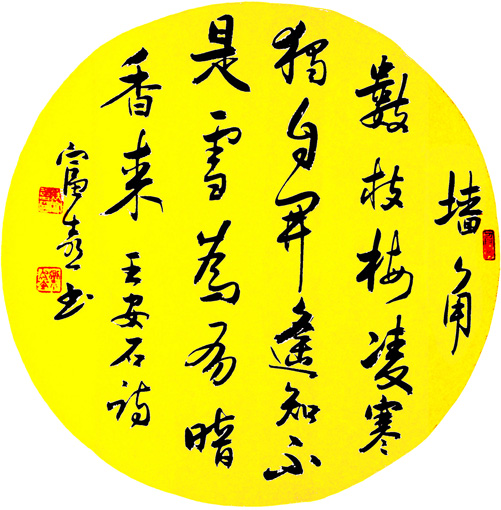 墙角
數枝梅凌寒
獨自開遙知不
是雪為有暗
香来 王安石诗
富书